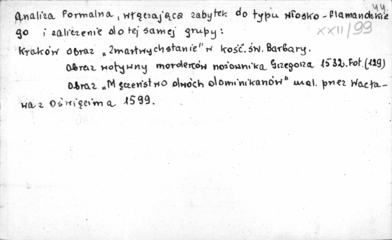 44
Analiza formalna, włączająca zabytek do typu włosko-flamandzkie
go i zaliczenie do tej samej grupy:
XXII/99
Kraków obraz „Zmartwychstanie" w kość. św. Barbary.
Obraz wotywny morderców nożownika Grzegorza 1532. Fot. (129)
Obraz „Męczeństwo dwóch dominikanów" mal. przez Wacła-
wa z Oświęcima 1599.